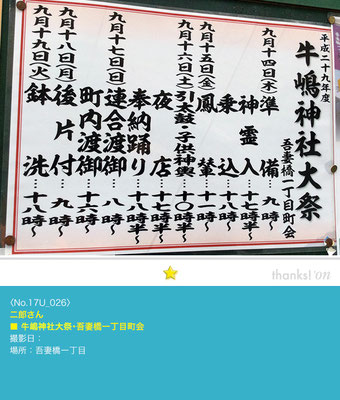 平成二十九年度
牛嶋神社大祭
吾妻橋一丁目町会
九月十四日(木)準備…九時〜
神霊入…十七時半〜
乗込…十八時〜
九月十五日(金)鳳輦…十一時〜
九月十六日(土)引太鼓・子供神輿…十時〜
夜店…十七時〜
奉納踊り…十八時〜
九月十七日(日)連合渡御…八時〜
町内渡御…十六時〜
九月十八日(月)後片付…九時〜
九月十九日(火)鉢洗…十八時〜
thanks! 'on
〈No.17U_026〉
二郎さん
■ 牛嶋神社大祭・吾妻橋一丁目町会
撮影日：
場所：吾妻橋一丁目